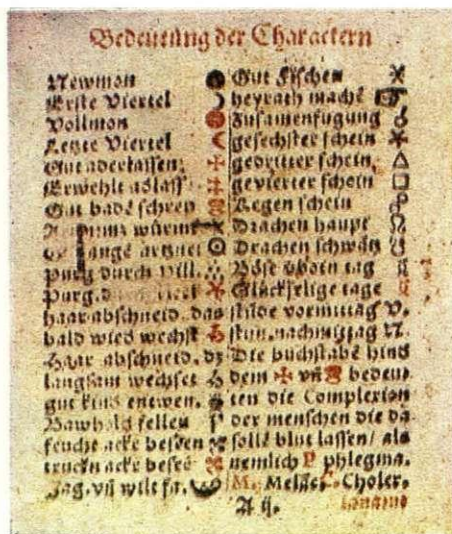 Bedeutung der Charactern
Newmon
Erste Viertel
Vollmon
Letzte Viertel
Gut aderlassen
Erwehlt
Gut badē schrep
würmt
lange artznei
Purg durch Pill.
Purg. durch
haar abschneid. das
bald wied wechst
Haar abschneid. dz
langsam wechset
gut kind entwen.
Bawholz fellen
feucht ackē beseen
truckn ackē beseē
Jag. vñ wilt fa.
Gut Fischen
heyrath machē
Zusamenfugung
gesechster schein
gedritter schein,
gevierter schein
Gegen schein
Drachen haupt
Drachen schwātz
Böse tag
Glückselige tage
stūde vormittag V.
stun. nachmittag N.
Die buchstabē hind
dem vñ bedeut
ten die Complexion
der menschen die da
sollē blut lassen/ als
nemlich P phlegma.
M. Melāc. C. Choler.
A ij.